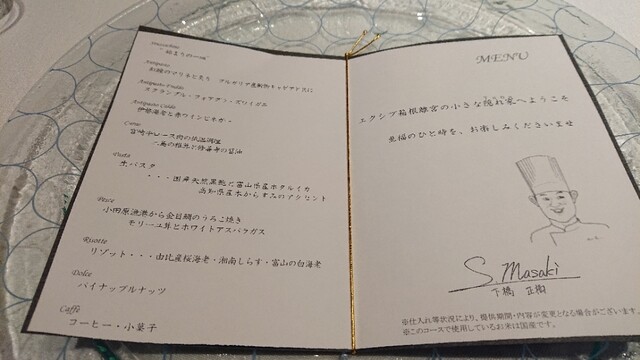 Stuzzichino
"始まりの一口"
Antipasto
Antipasto Freddo
スクランブル・フォアグラ・
Antipasto Caldo
伊勢海老と赤ワインビネガー
Carne
宮崎牛ロース肉の低温調理
Pasta
生パスタ
・・・国産天然黒鮑と富山県産ホタルイカ
高知県産本からすみのアクセント
Pesce
小田原漁港から金目鯛のうろこ焼き
モリーユ茸とホワイトアスパラガス
Risotto
リゾット・・・由比産桜海老・湘南しらす・富山の白海老
Dolce
パイナップルナッツ
Caffè
コーヒー・小菓子
MENU
エクシブ箱根離宮の小さな隠れ家へようこそ
至福のひと時を、お楽しみくださいませ
S Masaki
下橋 正樹
※仕入れ等状況により、提供期間・内容が変更となる場合がございます。
※このコースで使用しているお米は国産です。